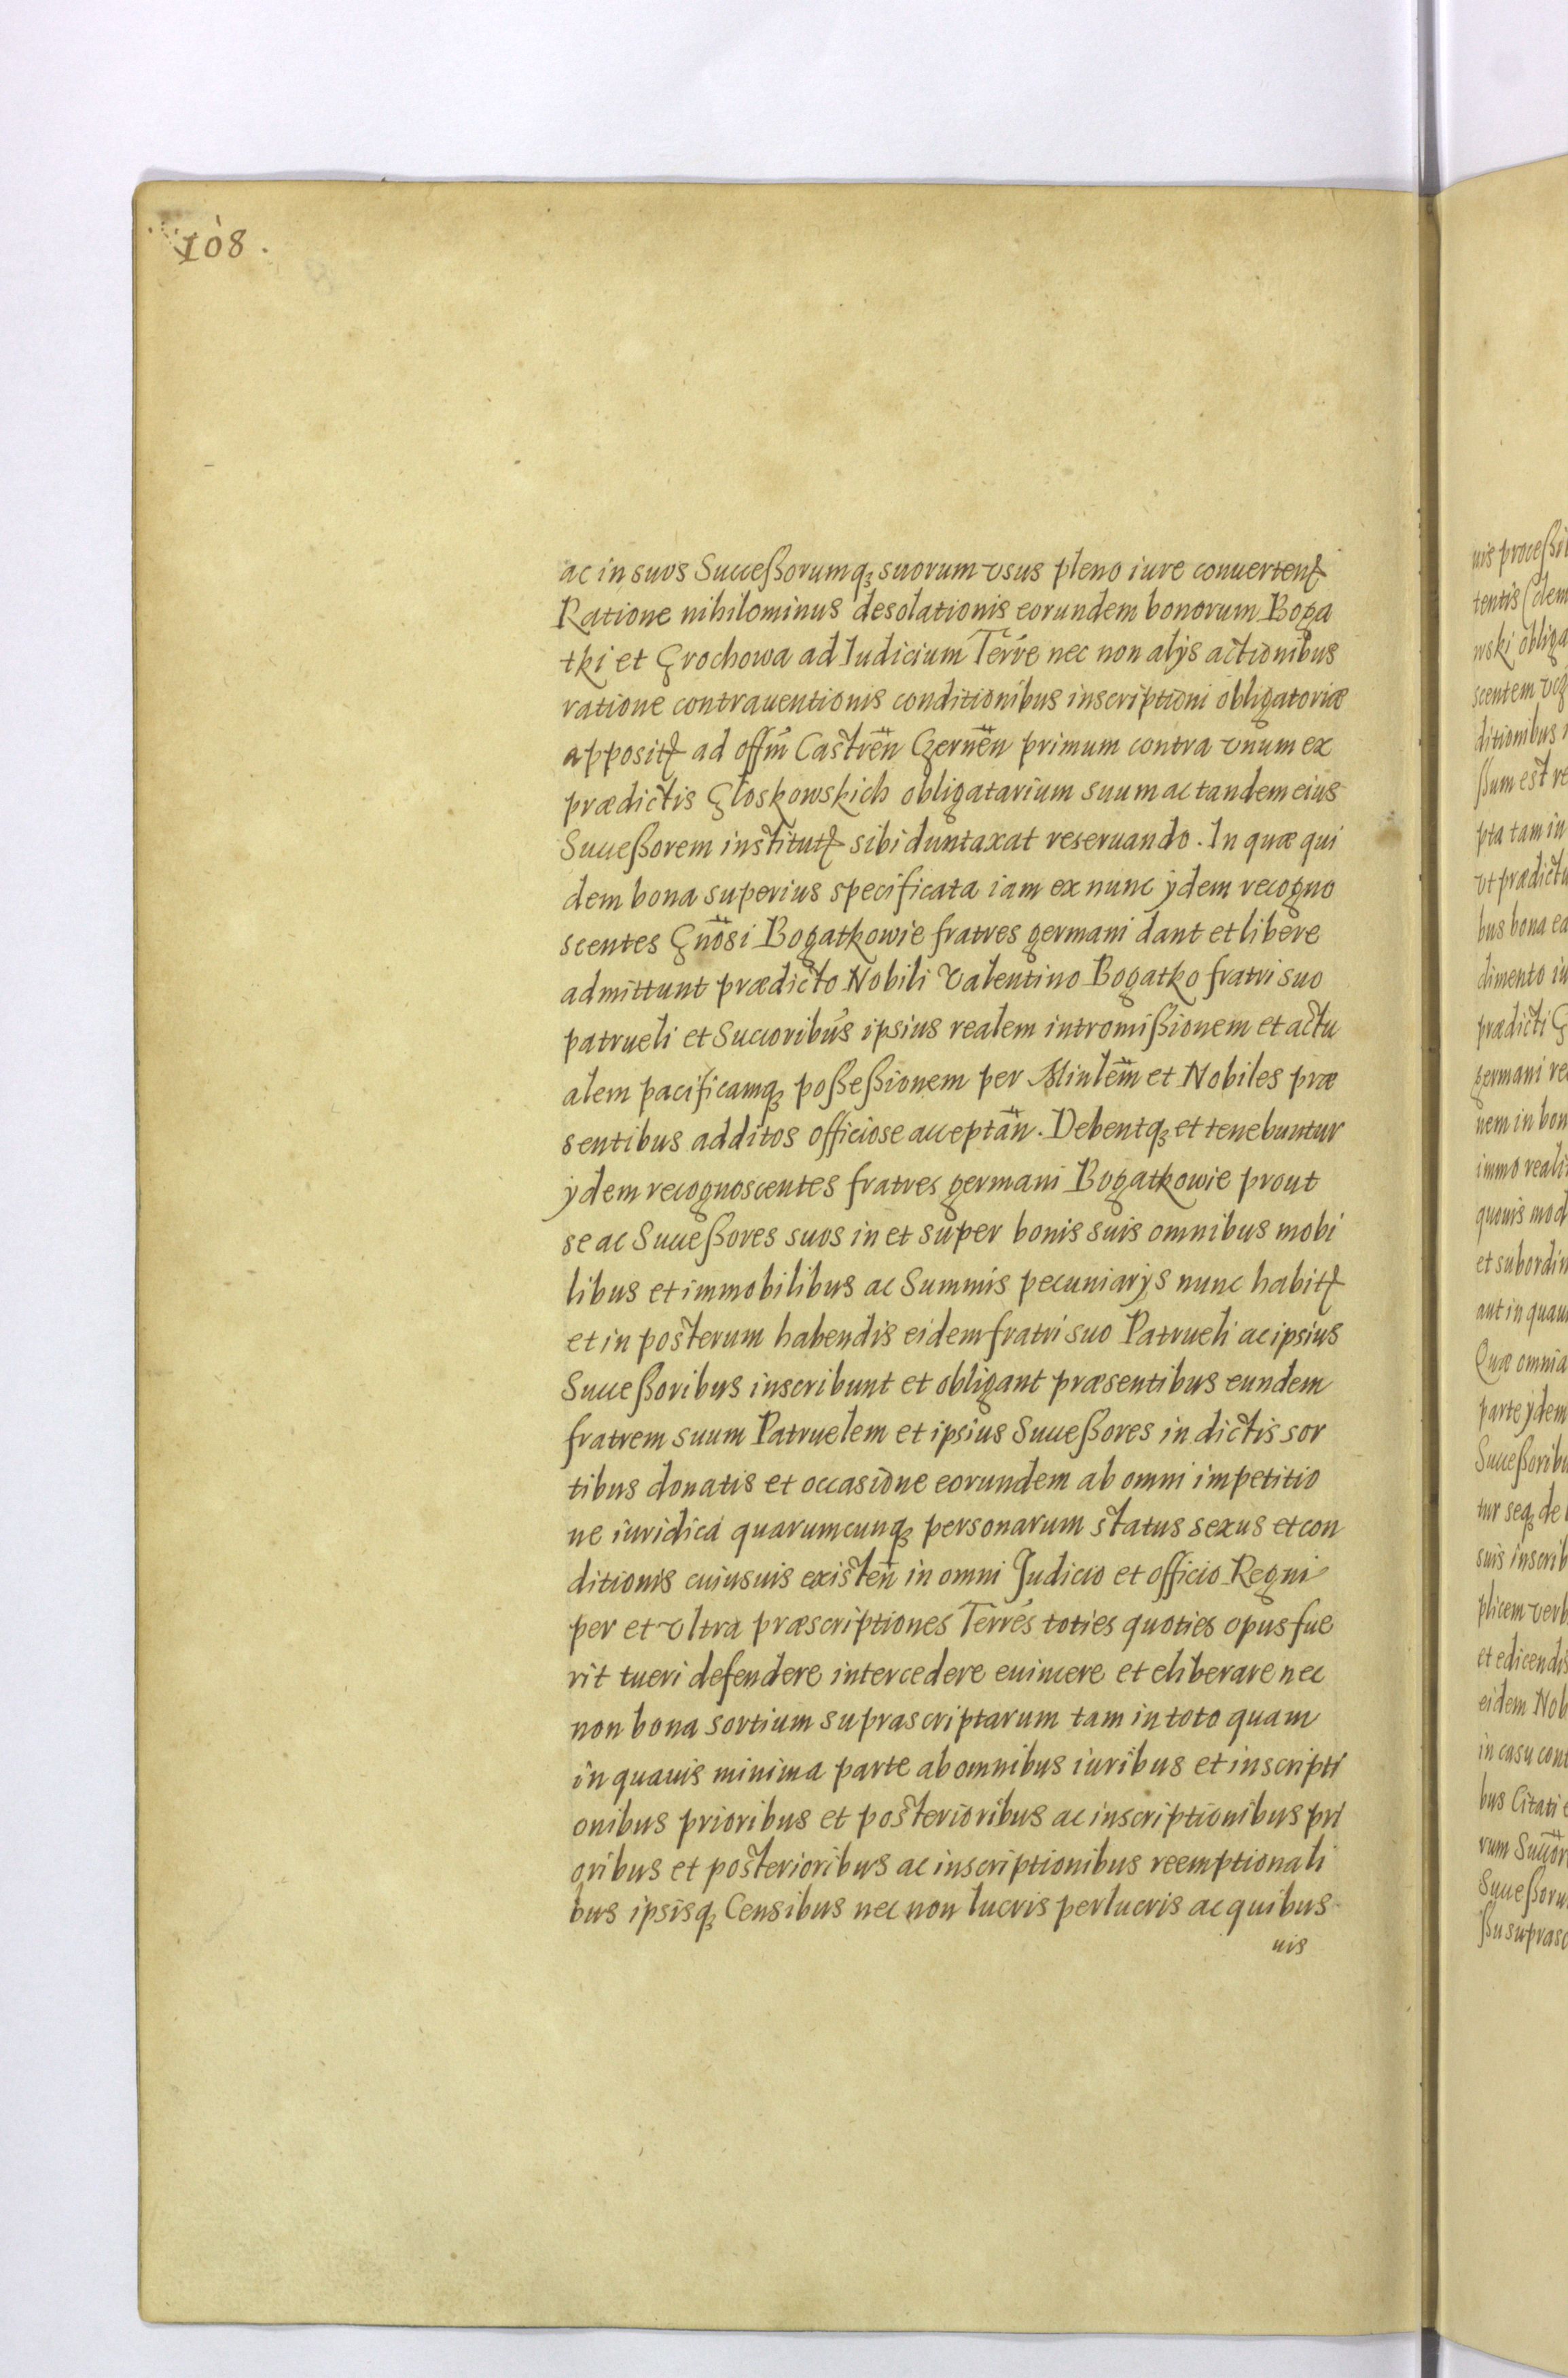 108.
ac in suos Successorumq₃ suorum vsus pleno iure conuertenꝭ
Ratione nihilominus desolationis eorundem bonorum Boga
tki et Grochowa ad Iudicium Terre nec non alÿs actionibus
ratione contrauentionis conditionibus inscriptioni obligatoriæ
appositꝭ ad offm̃ Castren̄ Czernen̄ primum contra vnum ex
prædictis Gloskowskich obligatarium suum ac tandem eius
Successorem institutꝭ sibi duntaxat reseruando. In quæ qui
dem bona superius specificata iam ex nunc ÿdem recogno
scentes Gno̅si Bogatkowie fratres germani dant et libere
admittunt prædicto Nobili Valentino Bogatko fratri suo
patrueli et Succoribus ipsius realem intromißionem et actu
alem pacificamq₃ poßeßionem per Minlem̄ et Nobiles præ
sentibus additos officiose acceptan̄. Debentq₃ et tenebuntur
ÿdem recognoscentes fratres germani Bogatkowie prout
se ac Succeßores suos in et super bonis suis omnibus mobi
libus et immobilibus ac Summis pecuniarÿs nunc habitꝭ
et in posterum habendis eidem fratri suo Patrueli ac ipsius
Succeßoribus inscribunt et obligant præsentibus eundem
fratrem suum Patruelem et ipsius Succeßores in dictis sor
tibus donatis et occasione eorundem ab omni impetitio
ne iuridica quarumcunq₃ personarum status sexus et con
ditionis cuiusuis existen̄ in omni Judicio et officio Regni
per et vltra præscriptiones Terrés toties quoties opus fue
rit tueri defendere intercedere euincere et eliberare nec
non bona sortium suprascriptarum tam in toto quam
in quauis minima parte ab omnibus iuribus et inscripti
onibus prioribus et posterioribus ac inscriptionibus pri
oribus et posterioribus ac inscriptionibus reemptionali
bus ipsisq₃ Censibus nec non lucris perlucris ac quibus
uis